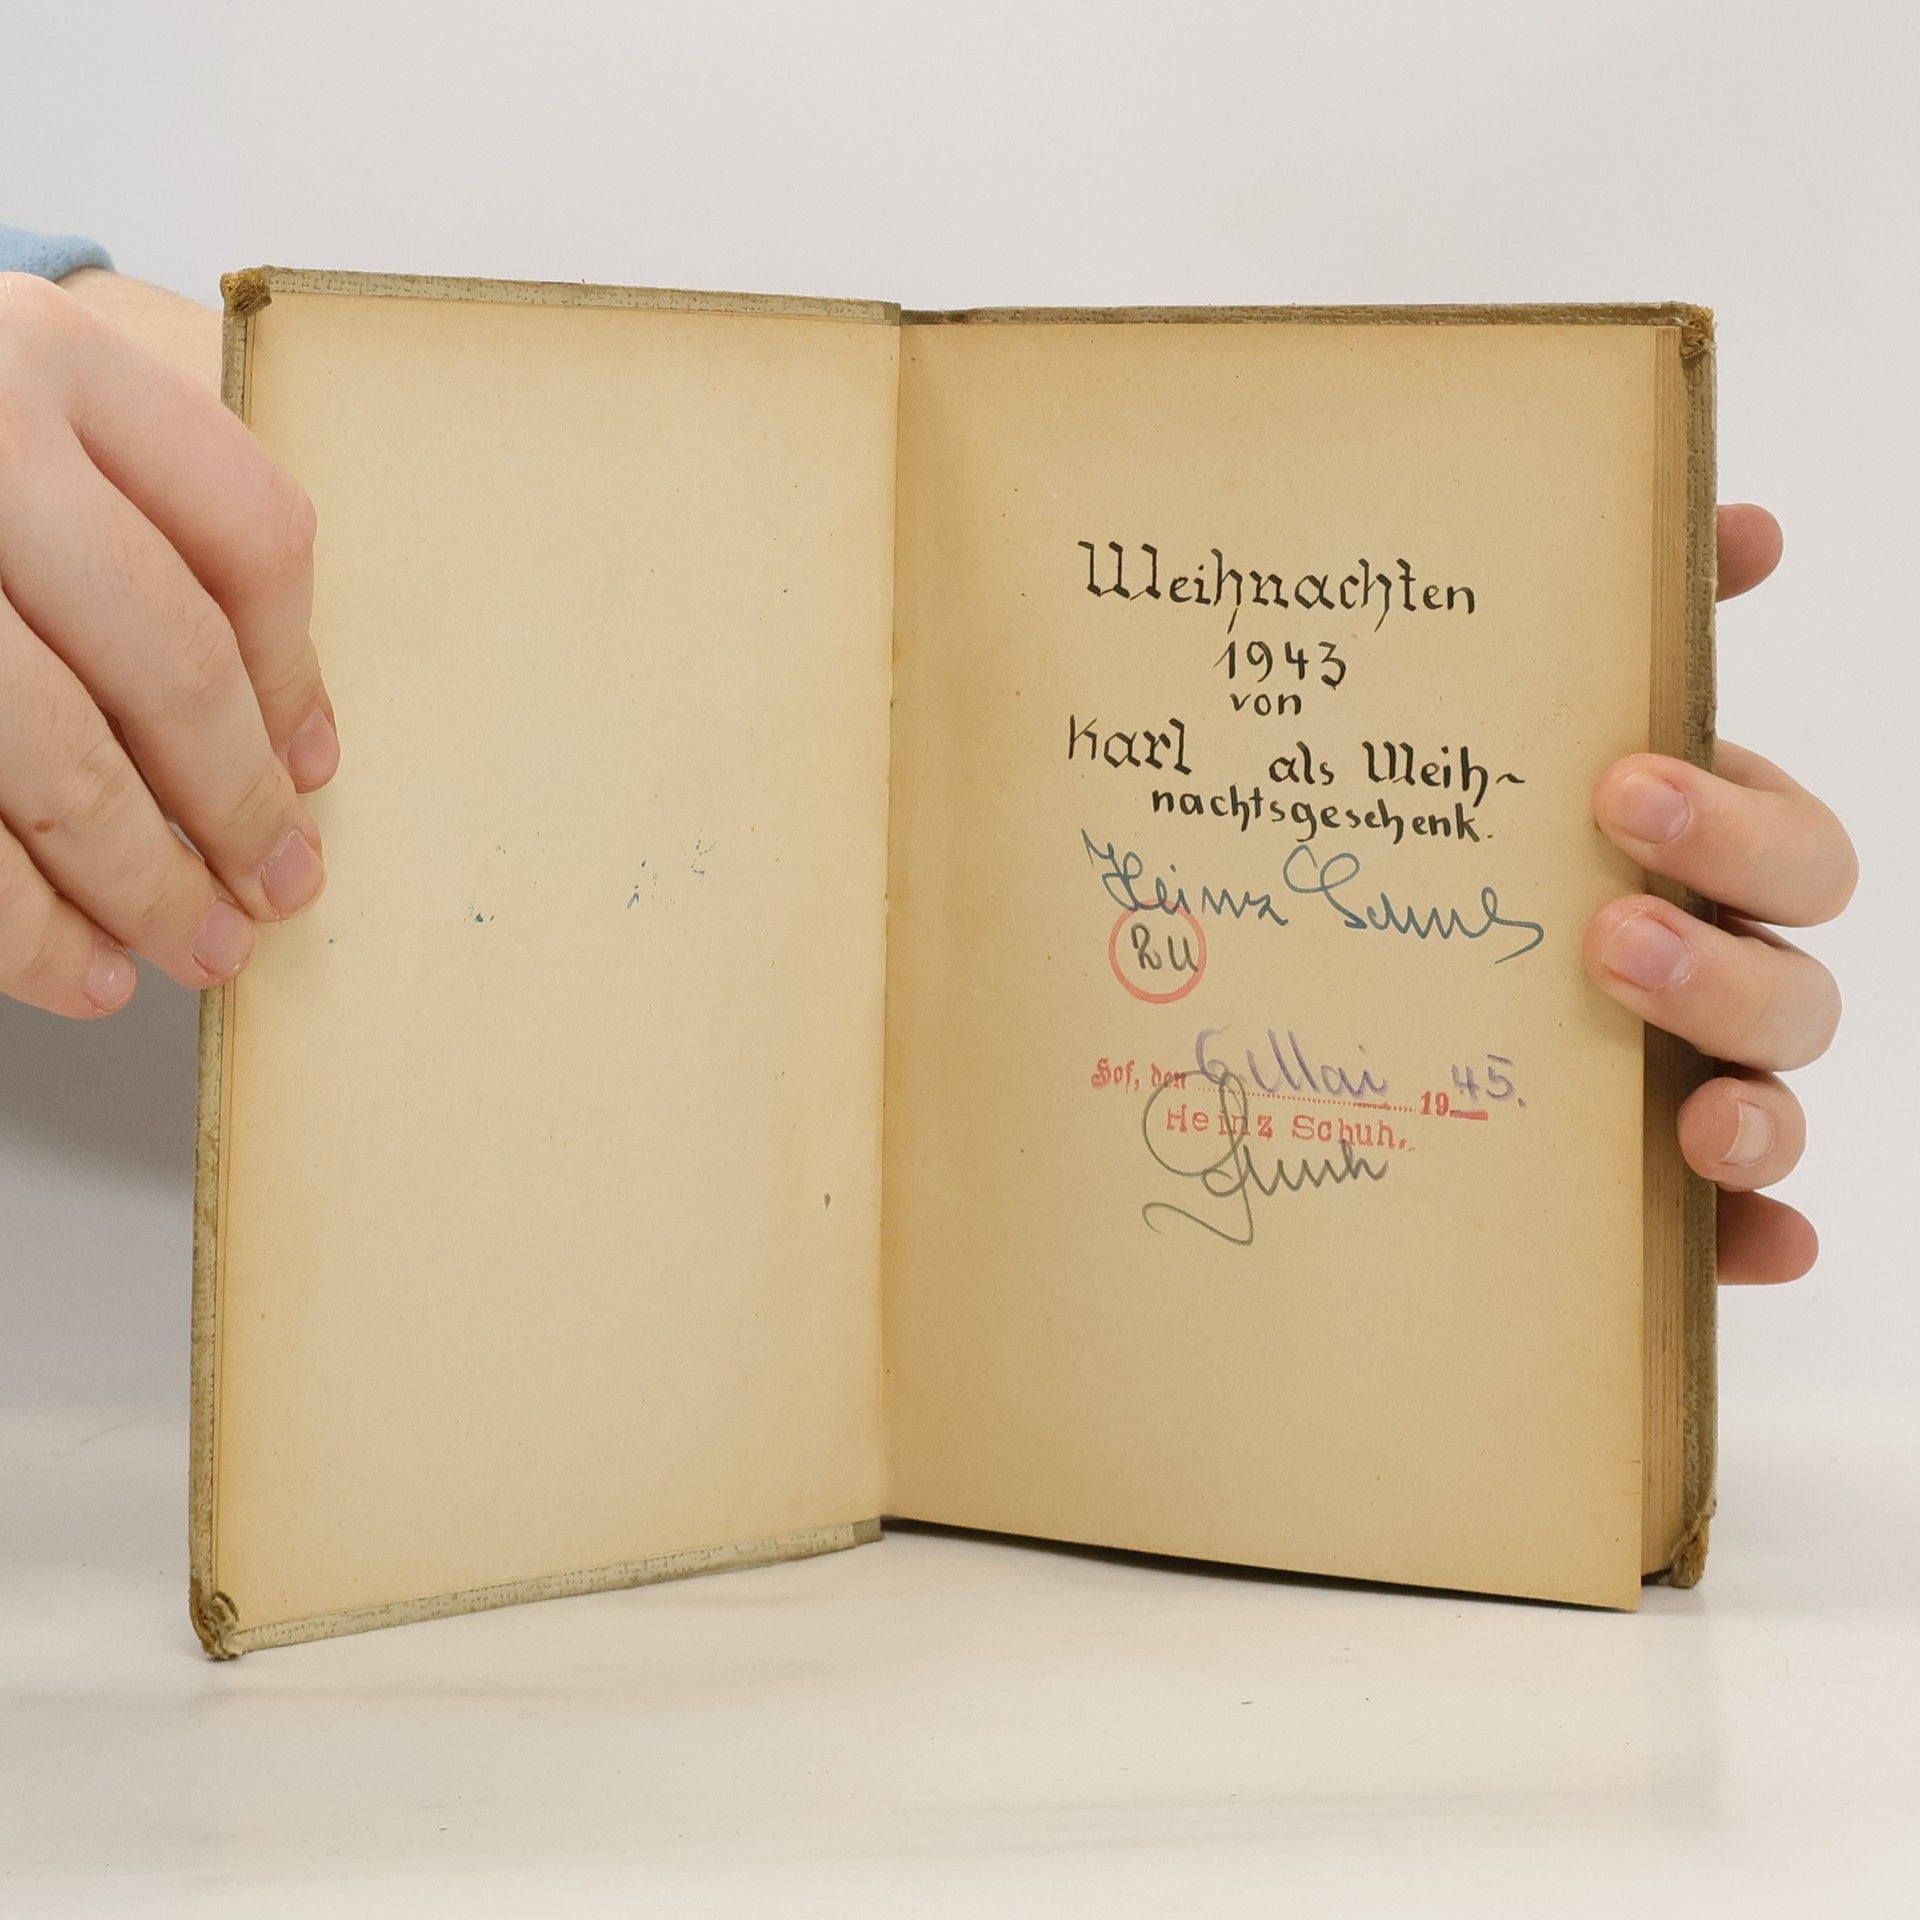 Weihnachten
1943
von
Karl als Weih-
nachtsgeschenk.
Heinz Schuh
Hof, den 6. Mai 1945.
Heinz Schuh.
Schuh